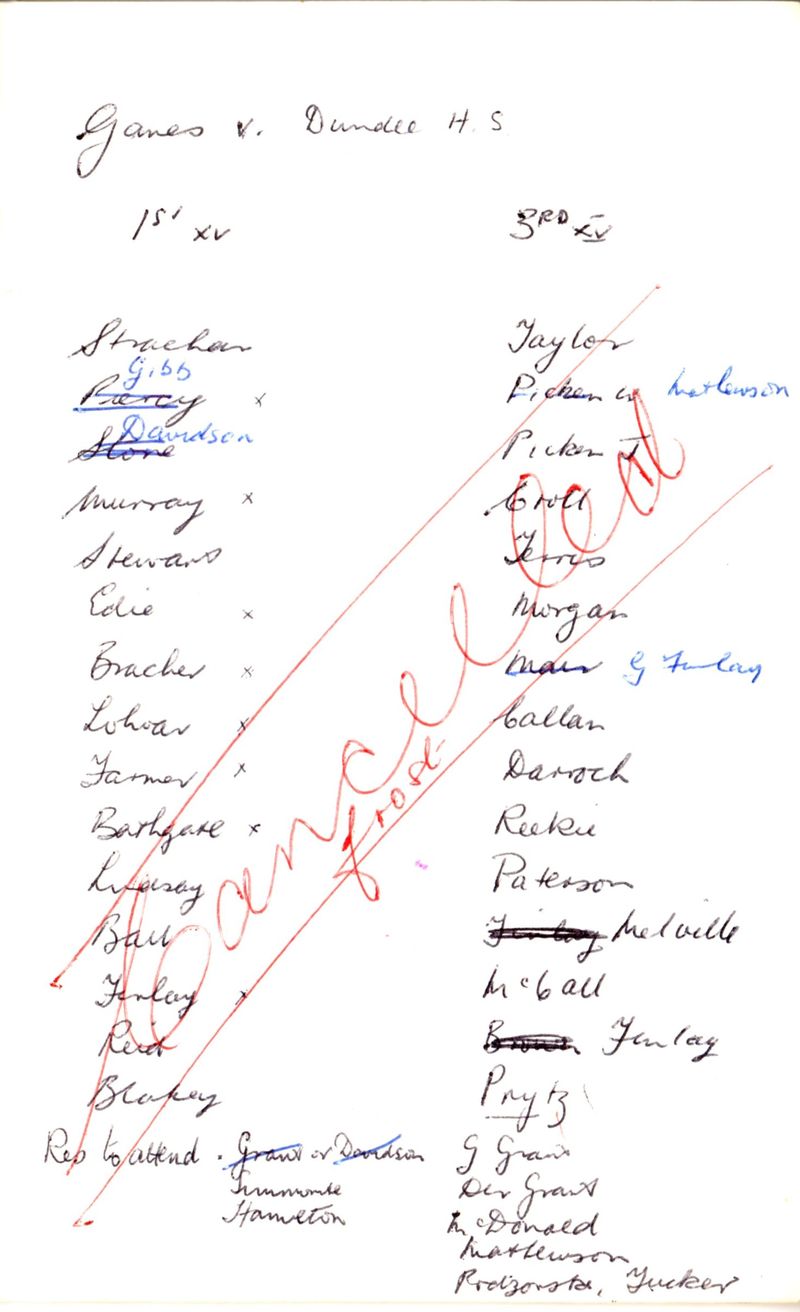 Games v. Dundee H.S
1ST XV
Strachan
Gibb
Piercy x
Davidson
Stone
Murray x
Stewart
Edie x
Bracher x
x
Farmer x
Bathgate x
Lindsay
Ball
Finlay x
Reid
Blakey
Res to attend. Grant or Davidson
Hamilton
3RD XV
Taylor
Picken W Mathewson
Picken J
Croll
Ferris
Morgan
Mair G Finlay
Callan
Darroch
Reekie
Paterson
Finlay Melville
McCall
Brown Finlay
Prytz
G Grant
Der Grant
McDonald
Mathewson
Tucker
Cancelled
frost